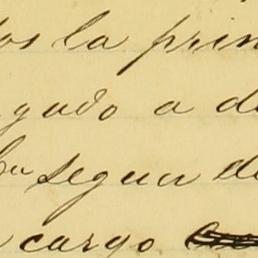 os la prin
gado a d
segun de
cargo